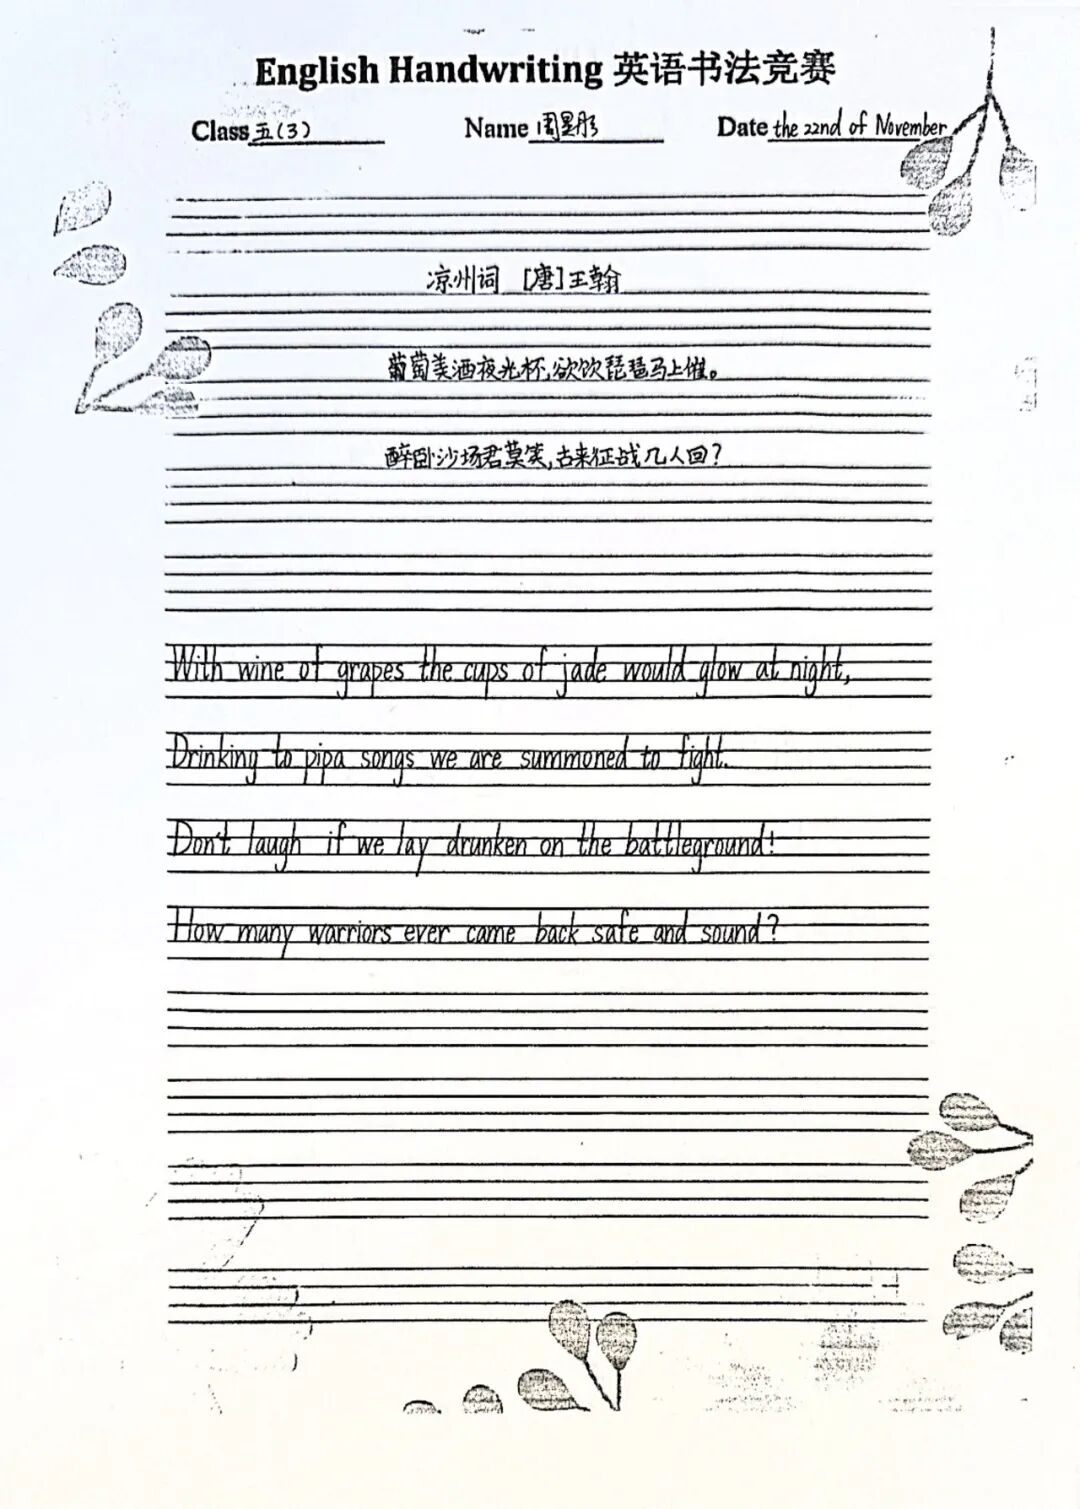 English Handwriting 英语书法竞赛
Class 五(3) Name 周昱彤 Date the 22nd of November
凉州词 [唐]王翰
葡萄美酒夜光杯,欲饮琵琶马上催。
醉卧沙场君莫笑,古来征战几人回?
With wine of grapes the cups of jade would glow at night,
Drinking to pipa songs we are summoned to fight.
Don't laugh if we lay drunken on the battleground!
How many warriors ever came back safe and sound?